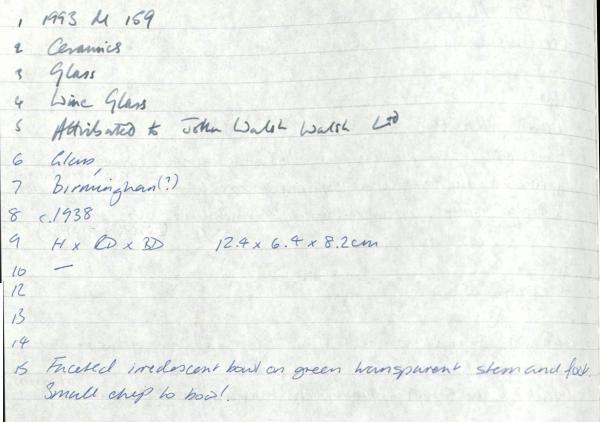 1 1993 M 159
2 Ceramics
3 Glass
4 Wine Glass
5 Attributed to John Walsh Walsh Ltd
6 Glass,
7 Birmingham(?)
8 c.1938
9 H x RD x BD 12.4 x 6.4 x 8.2cm
10 —
12
13
14
15 Faceted irredescent bowl on green transparent stem and foot.
Small chip to bowl.